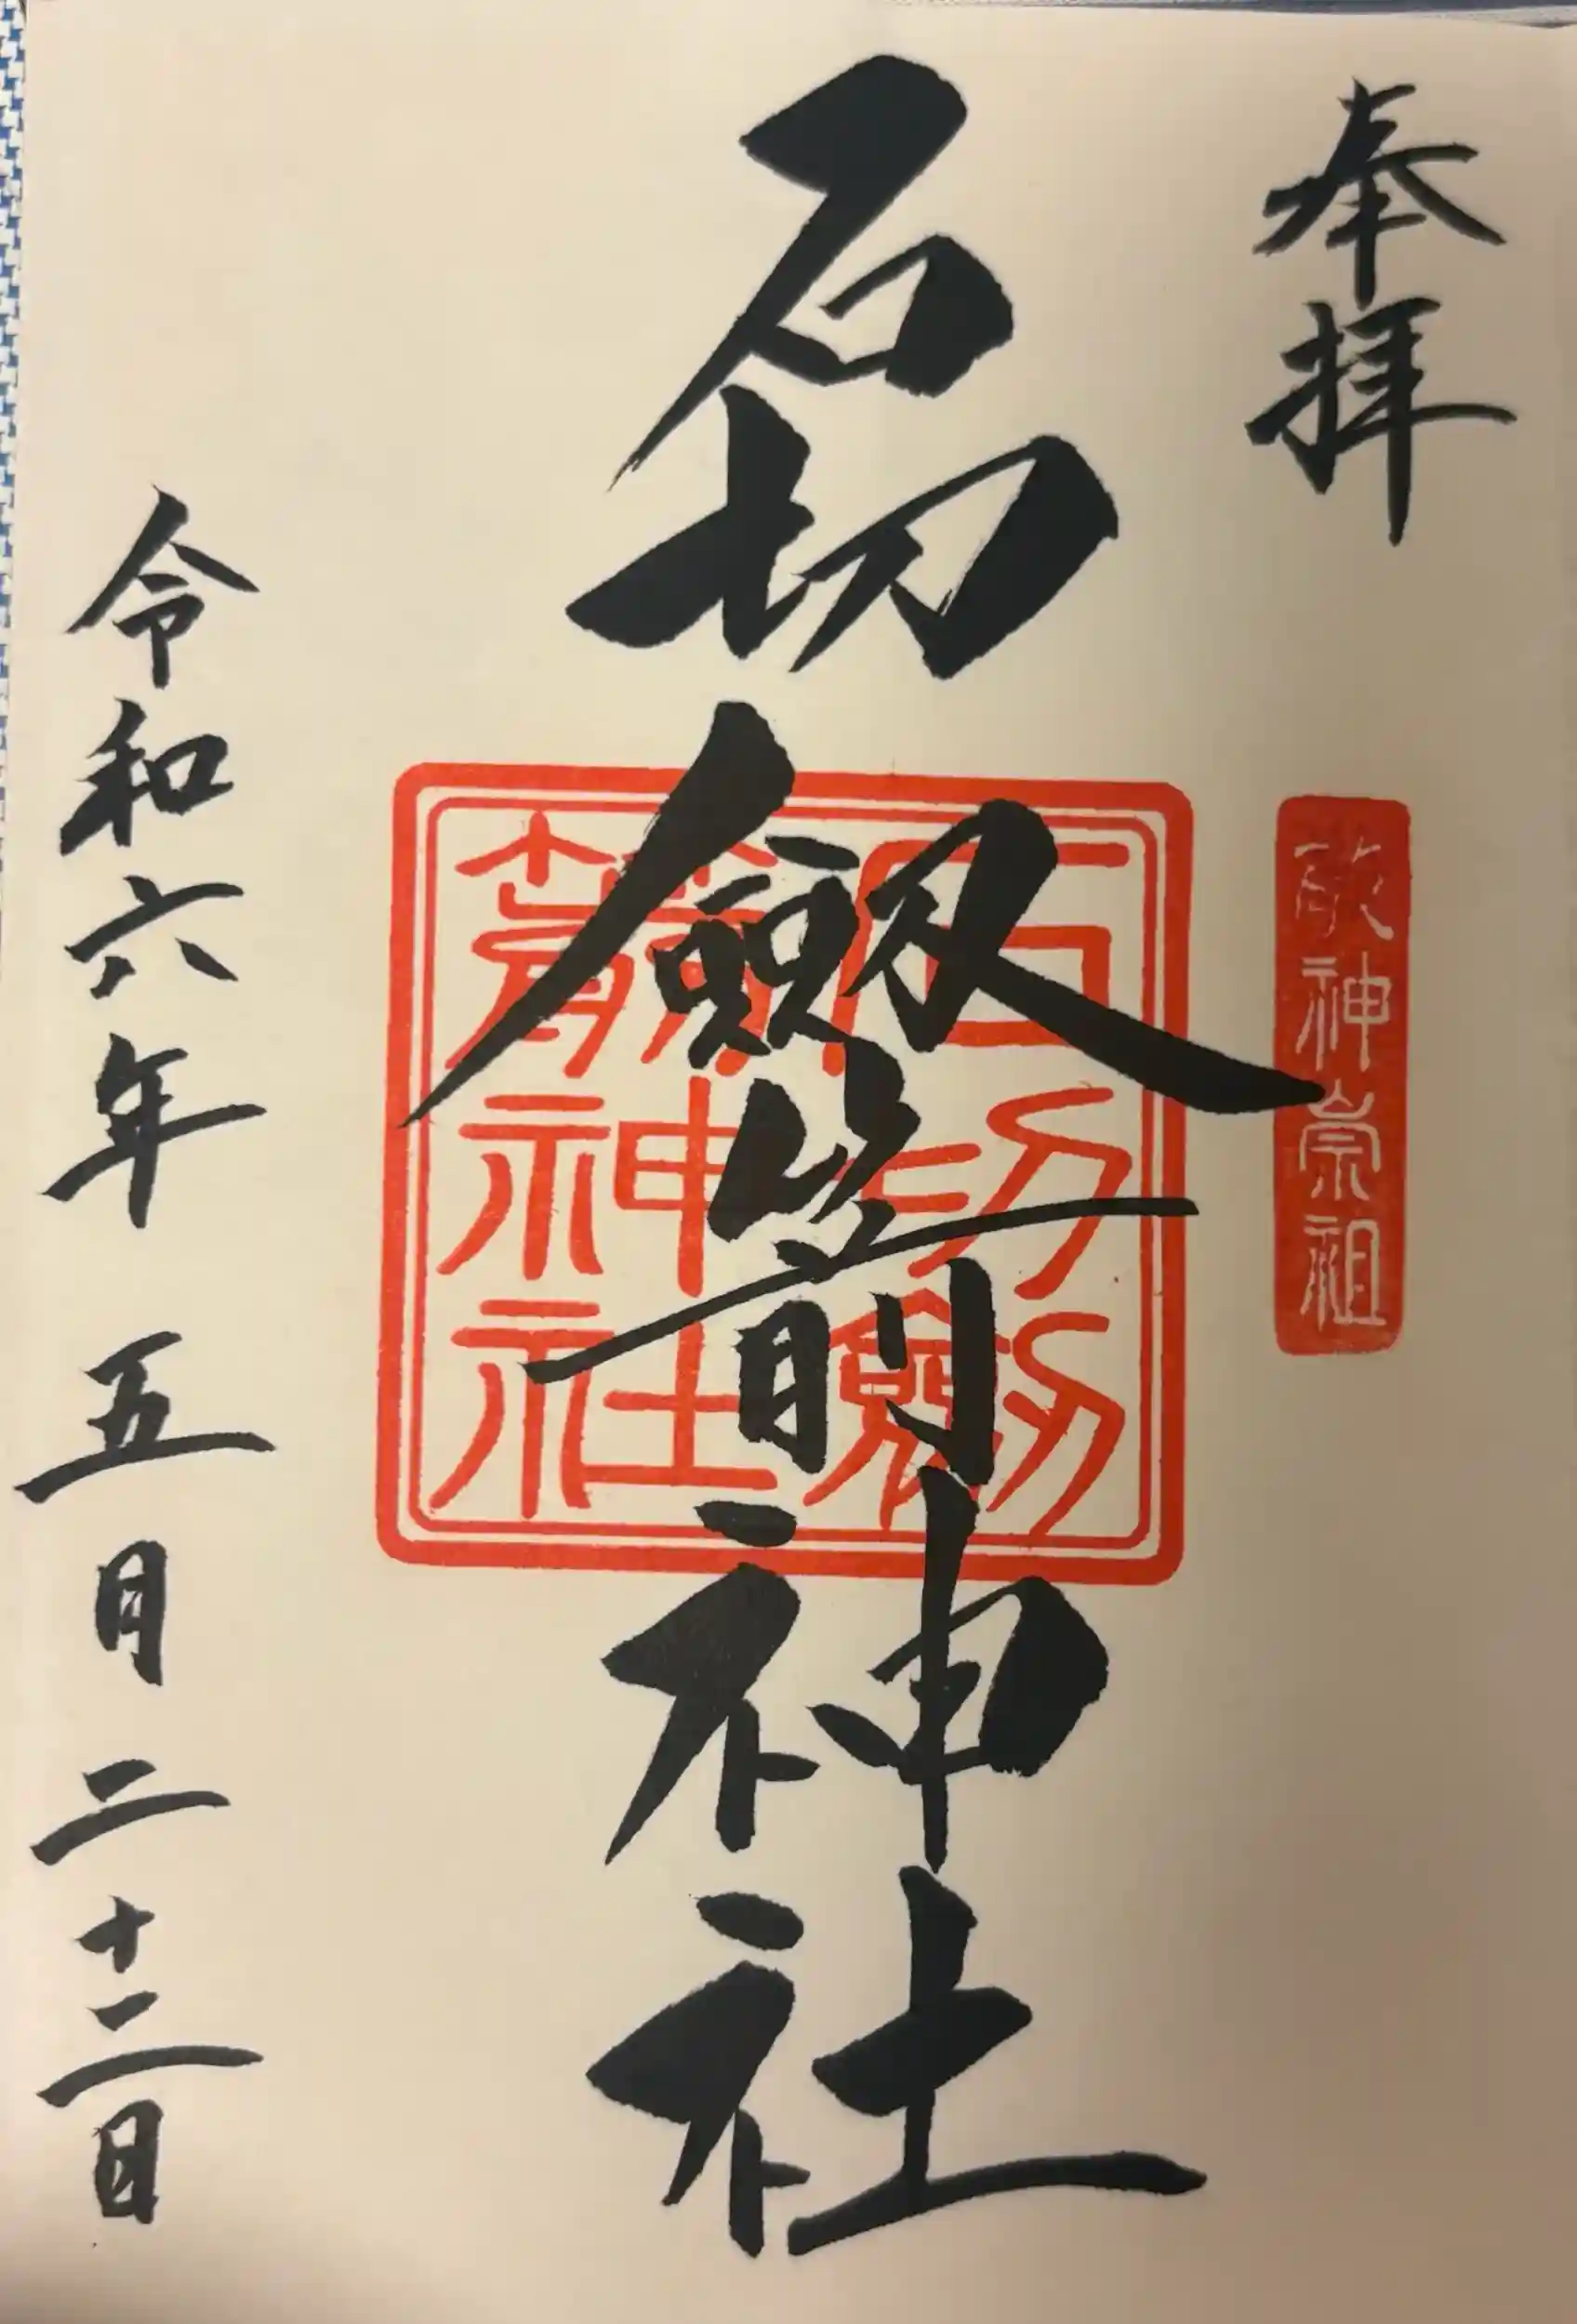 奉拝
敬神崇祖
石切劔箭神社
石切劔
箭神社
令和六年 五月 二十二日